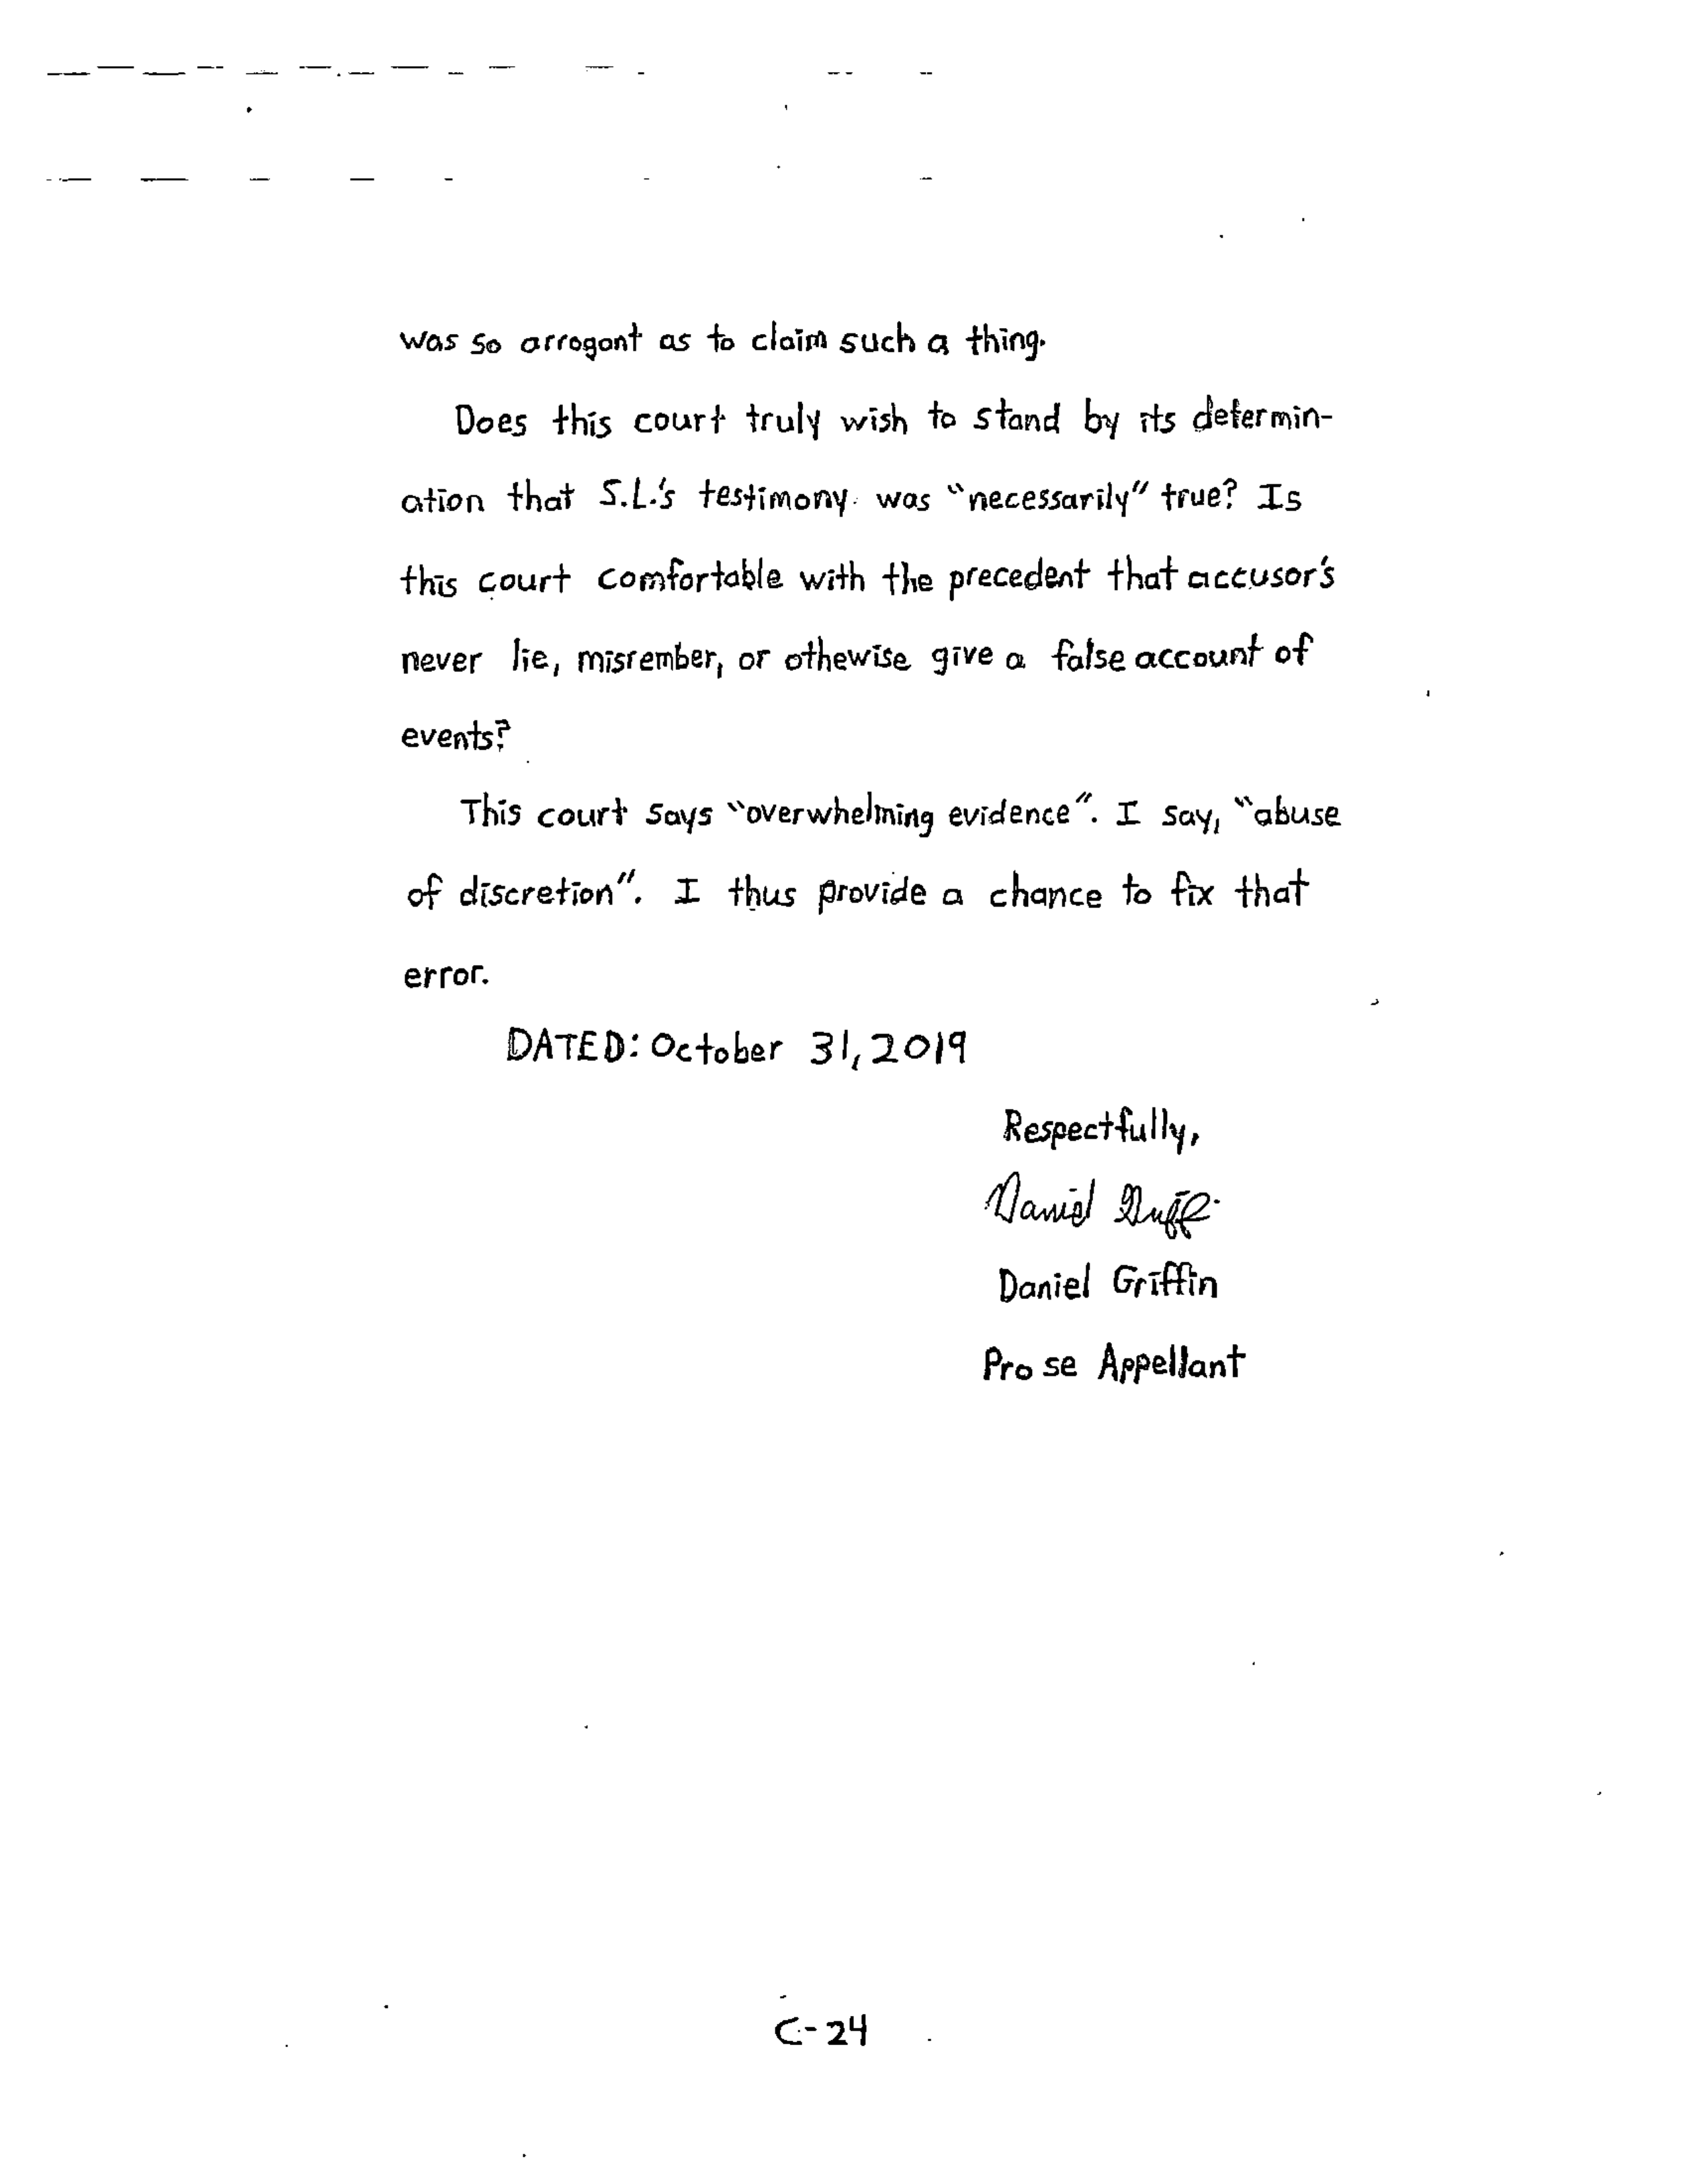 was so arrogant as to claim such a thing.
Does this court truly wish to stand by its determin-
ation that S.L.'s testimony was "necessarily" true? Is
this court comfortable with the precedent that accusor's
never lie, misrember, or othewise give a false account of
events?
This court says "overwhelming evidence". I say, "abuse
of discretion". I thus provide a chance to fix that
error.
DATED: October 31, 2019
Respectfully,
Daniel Griffin
Daniel Griffin
Pro se Appellant
C-24